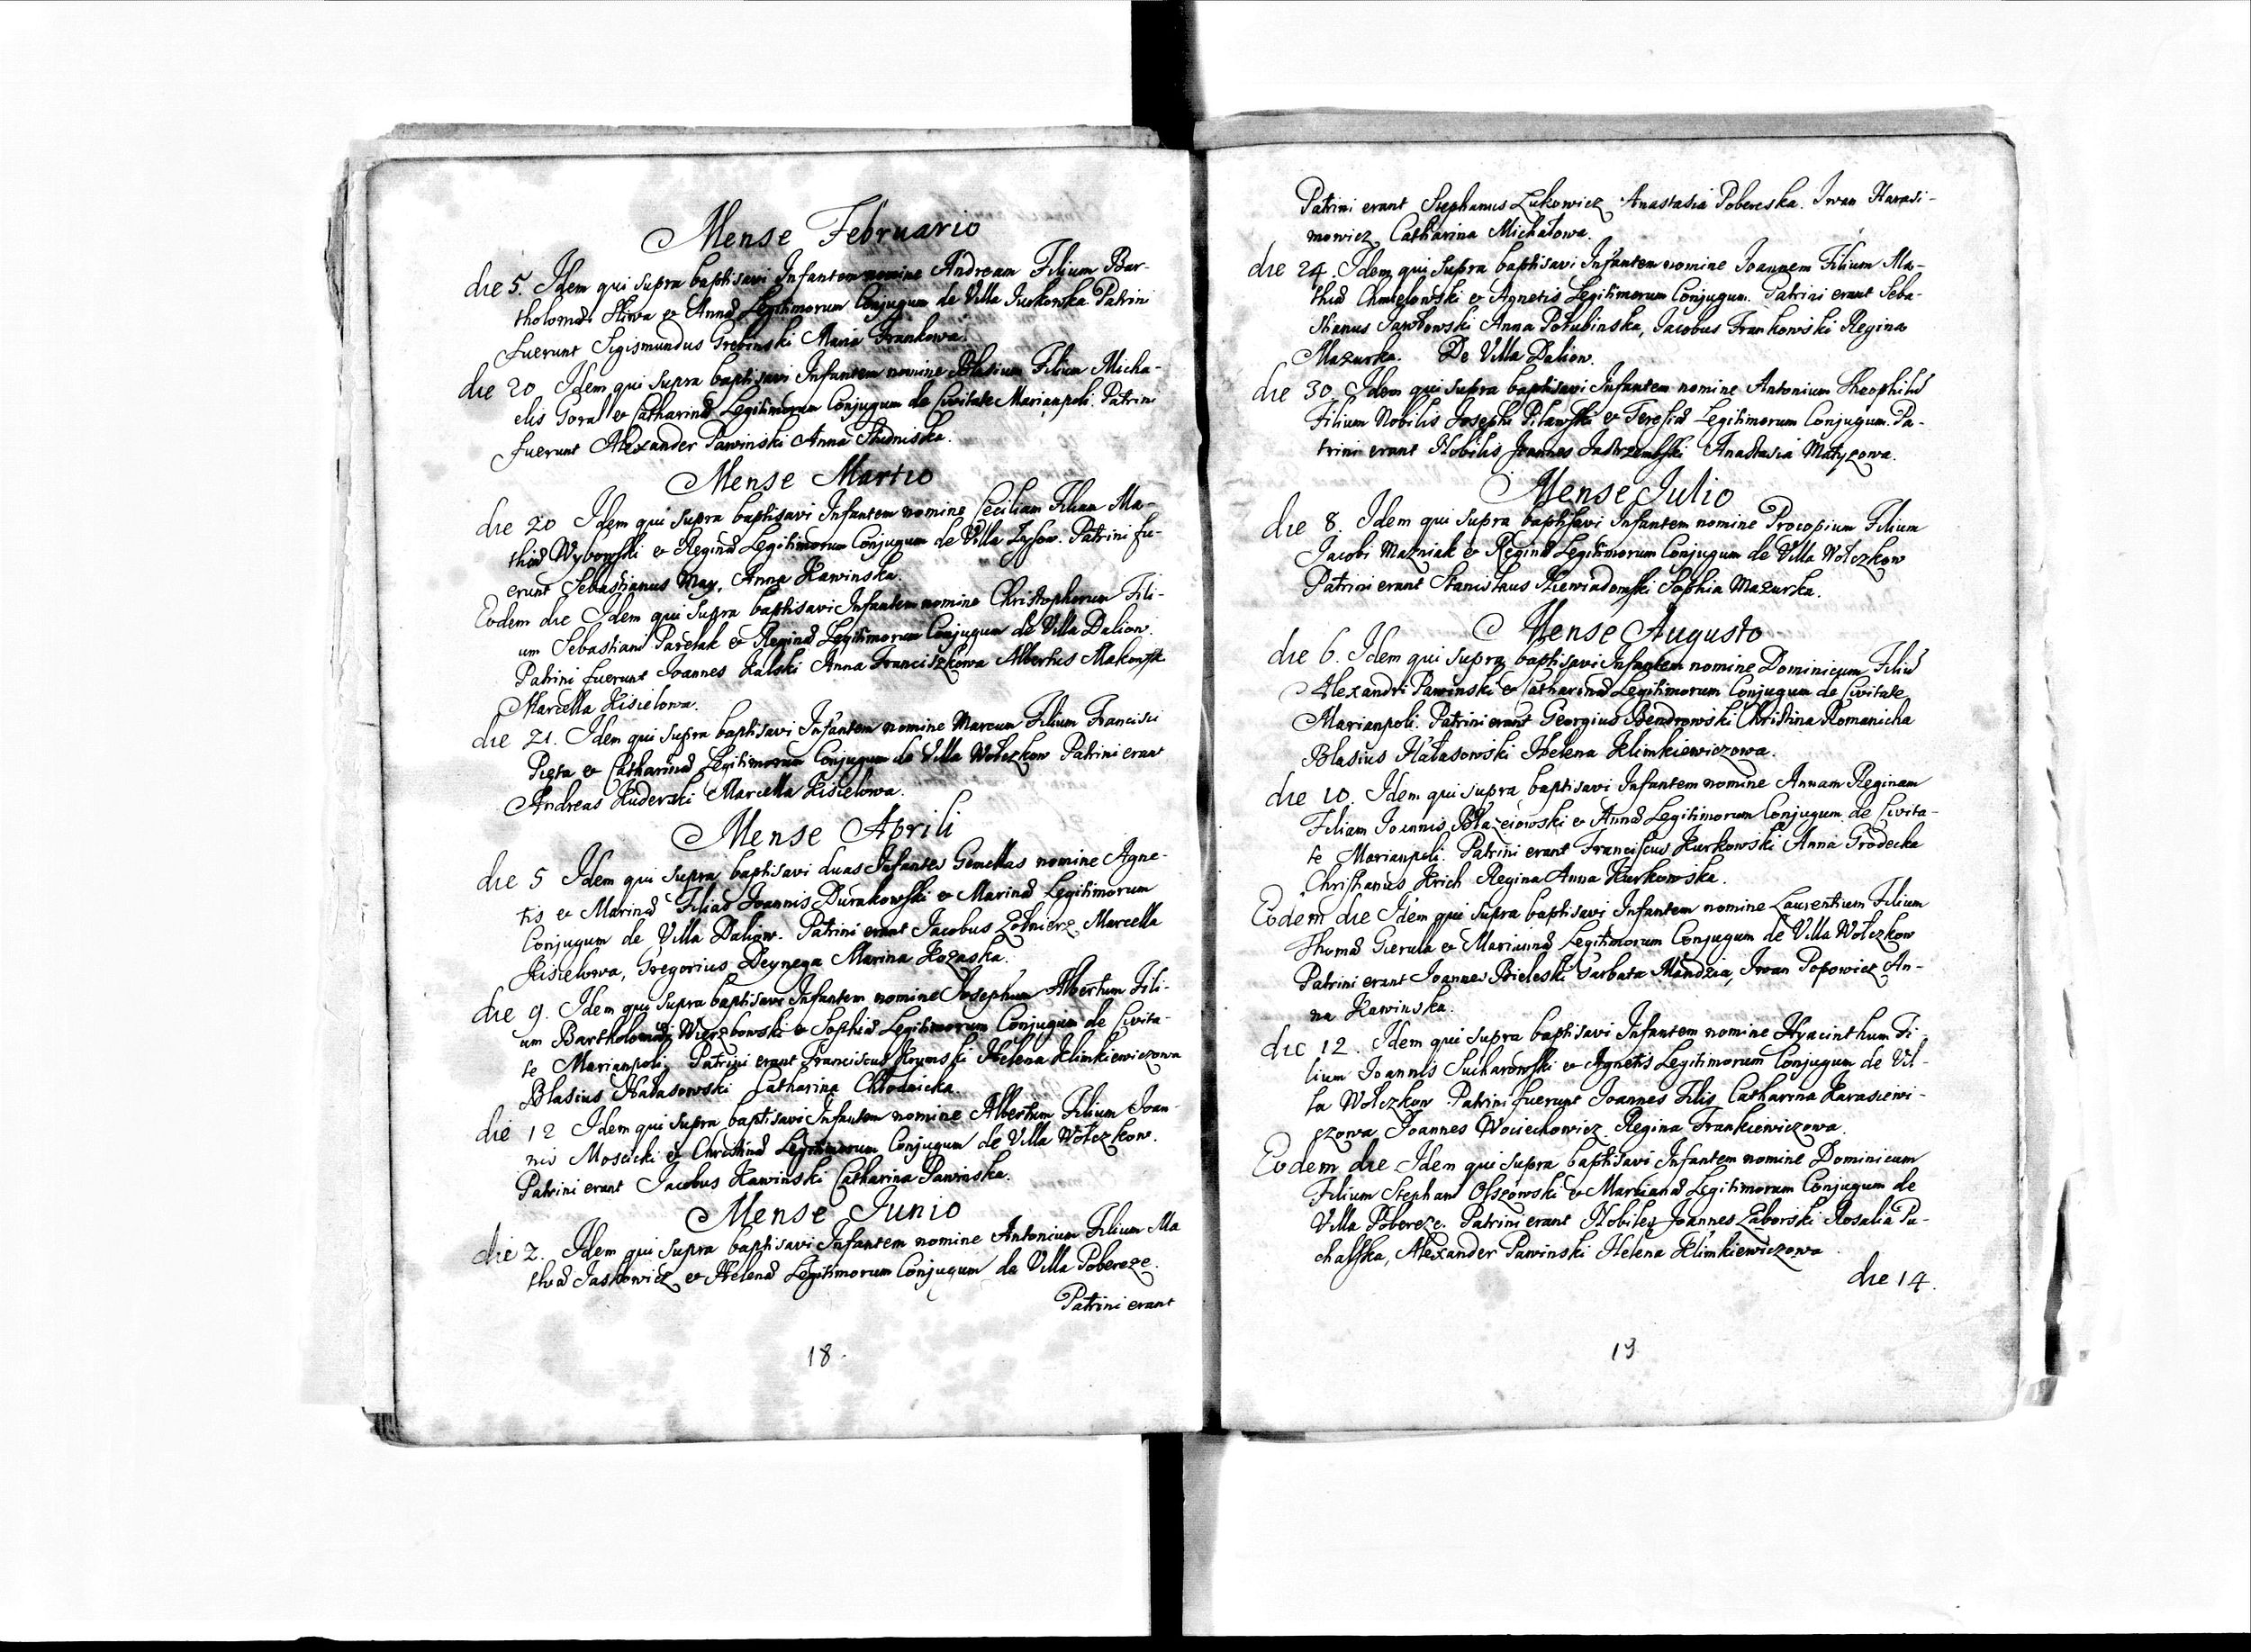 Mense Februario
die 5. Idem qui supra baptisavi Infantem nomine Andream Filium Bar-
tholomæi Sliwa et Annæ Legitimorum Conjugum de Villa Jurkowka Patrini
fuerunt Sigismundus Grebinski Maria Frankowa.
die 20 Idem qui supra baptisavi Infantem nomine Blasium Filium Micha-
elis Goral et Catharinæ Legitimorum Conjugum de Civitate Marianpoli. Patrini
fuerunt Alexander Pawinski Anna Studniska.
Mense Martio
die 20 Idem qui supra baptisavi Infantem nomine Ceciliam Filiam Ma-
thiæ Wybowski et Reginæ Legitimorum Conjugum de Villa Łysow. Patrini fu-
erunt Sebastianus May, Anna Kawinska.
Eodem die Idem qui supra baptisavi Infantem nomine Christophorum Fili-
um Sebastiani Parelak et Reginæ Legitimorum Conjugum de Villa Daliow.
Patrini fuerunt Joannes Kalski Anna Franciszkowa Albertus Makowski
Marcella Kisielowa.
die 21. Idem qui supra baptisavi Infantem nomine Marcum Filium Francisci
Pięta et Catharinæ Legitimorum Conjugum de Villa Wołczkow Patrini erant
Andreas Kuderski Marcella Kisielowa.
Mense Aprili
die 5 Idem qui supra baptisavi duas Infantes Gemellas nomine Agne-
tis et Marinæ Filias Joannis Durakowski et Marinæ Legitimorum
Conjugum de Villa Daliow. Patrini erant Jacobus Żołnierz Marcella
Kisielowa, Gregorius Deynega Marina Kozaska.
die 9. Idem qui supra baptisavi Infantem nomine Josephum Albertum Fili-
um Bartholomæi Wierzbowski et Sophiæ Legitimorum Conjugum de Civita-
te Marianpoli, Patrini erant Franciscus Krynski Helena Klimkiewiczowa
Blasius Hałasowski Catharina Chłodnicka.
die 12 Idem qui supra baptisavi Infantem nomine Albertum Filium Joan-
nis Moscicki et Christinæ Legitimorum Conjugum de Villa Wołczkow.
Patrini erant Jacobus Kawinski Catharina Pawinska.
Mense Junio
die 2. Idem qui supra baptisavi Infantem nomine Antonium Filium Ma
thiæ Jaskowicz et Helenæ Legitimorum Conjugum de Villa Pobereze.
Patrini erant
18.
Patrini erant Stephanus Łukowicz Anastasia Pobereska. Iwan Harasi-
mowicz Catharina Michałowa.
die 24. Idem qui supra baptisavi Infantem nomine Joannem Filium Ma-
thiæ Chmielowski et Agnetis Legitimorum Conjugum. Patrini erant Seba-
stianus Anna Połubinska, Jacobus Frankowski Regina
Mazurka. De Villa Daliow.
die 30. Idem qui supra baptisavi Infantem nomine Antonium Theophilū
Filium Nobilis Josephi Pilawski et Teresiæ Legitimorum Conjugum. Pa-
trini erant Nobilis Joannes Jastrzembski Anastasia Matyzowa.
Mense Julio
die 8. Idem qui supra baptisavi Infantem nomine Procopium Filium
Jacobi Mazniak et Reginæ Legitimorum Conjugum de Villa Wołczkow
Patrini erant Stanislaus Niewiadomski Sophia Mazurka.
Mense Augusto
die 6. Idem qui supra baptisavi Infantem nomine Dominicum Filiū
Alexandri Pawinski et Catharinæ Legitimorum Conjugum de Civitate
Marianpoli. Patrini erant Georgius Bendrowski Christina Romanicha
Blasius Hałasowski Helena Klimkiewiczowa.
die 10. Idem qui supra baptisavi Infantem nomine Annam Reginam
Filiam Joannis Błazeiowski et Annæ Legitimorum Conjugum de Civita-
te Marianpoli. Patrini erant Franciscus Kurkowski Anna Grodecka
Christianus Krich Regina Anna Kurkowska.
Eodem die Idem qui supra baptisavi Infantem nomine Laurentium Filium
Thomæ Gierula et Mariannæ Legitimorum Conjugum de Villa Wołczkow
Patrini erant Joannes Bieleski Barbara Mandzia, Iwan Popowicz An-
na Kawinska.
die 12. Idem qui supra baptisavi Infantem nomine Hyacinthum Fi-
lium Joannis Sucharowski et Agnetis Legitimorum Conjugum de Vil-
la Wołczkow Patrini fuerunt Joannes Filis Catharina Karasiewi-
czowa Joannes Wociechowicz Regina Frankiewiczowa.
Eodem die Idem qui supra baptisavi Infantem nomine Dominicum
Filium Stephani Olszowski et Mariannæ Legitimorum Conjugum de
Villa Pobereze. Patrini erant Nobiles Joannes Zaborski Rosalia Pu-
chalska, Alexander Pawinski Helena Klimkiewiczowa
die 14.
19